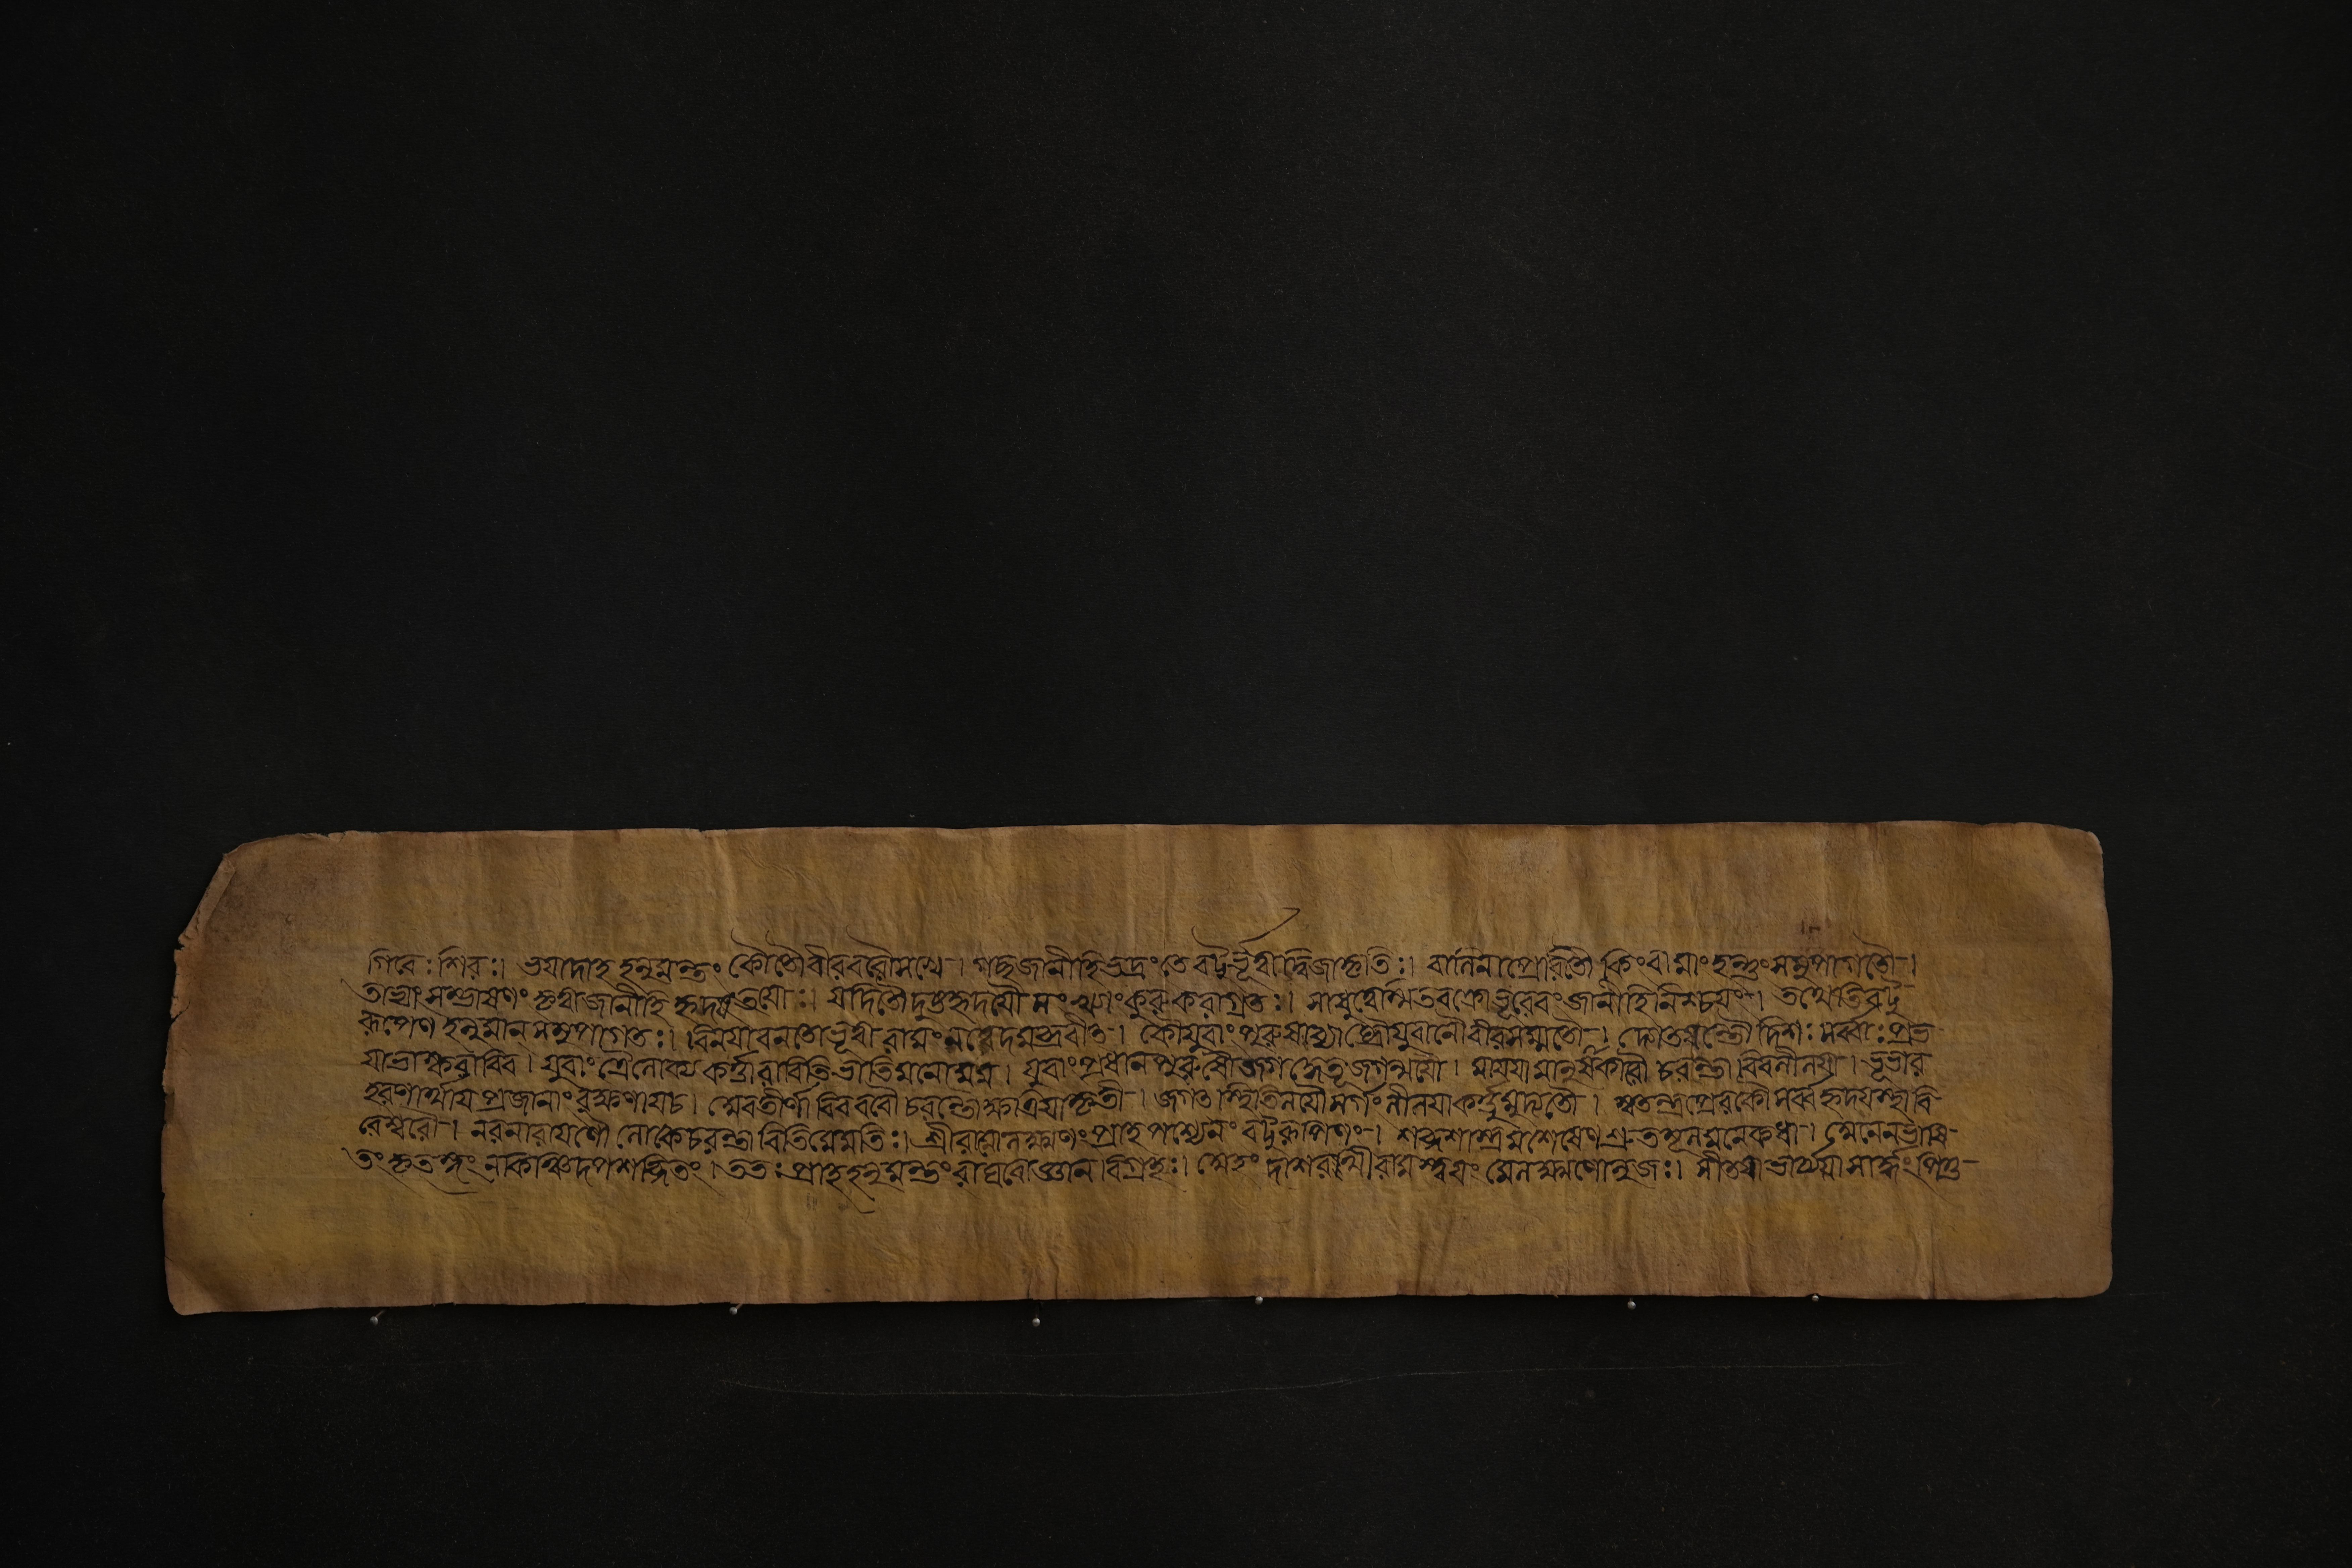 গিরেঃ শিরঃ। ভযাদাহ হনুমন্তং কৌতৌবীরবরৌসখে। গচ্ছজানীহিভদ্রংতে বটুর্ভূত্বাদ্বিজাকৃতিঃ। বালিনাপ্রেরিতৌ কিংবা মাংহন্তুংসমুপাগতৌ।
তাভ্যাং সম্ভাষণং কৃত্বাজানীহি হৃদযংতযোঃ। যদিতৌদুষ্টহৃদযৌ সংজ্ঞাংকুরু করাগ্রতঃ। সাধুত্বেস্মিতবক্ত্রোভূরেবংজানীহিনিশ্চযং। তথেতিবটু
রূপেণ হনুমান সমুপাগতঃ। বিনযাবনতোভূত্বা রামংনত্বেদমব্রবীৎ। কৌযুবাং পুরুষব্যাঘ্রৌযুবানৌবীরসম্মতৌ। দ্যোতযন্তৌ দিশঃ সর্ব্বাঃপ্রভ
যাভাস্করাবিব। যুবাং ত্রৈলোক্য কর্ত্তারাবিতিভাতিমনোমম। যুবাংপ্রধানপুরুষৌজগদ্ধেতূজগন্মযৌ। মাযযামানুষাকারৌ চরন্তা বিবলীলযা। ভূভার
হরণার্থায প্রজানাং রক্ষণাযচ। হ্মবতীর্ণা বিবপরৌ চরন্তৌক্ষত্রিযাকৃতী। জগৎস্থিতিলযৌসর্গংলীলযাকর্ত্তুমুদ্যতৌ। স্বতন্ত্রপ্রেরকৌসর্ব্বহৃদযস্থাবি
হেশ্বরৌ। নরনারাযণৌ লোকেচরন্তা বিতিমেমতিঃ। শ্রীরামোলক্ষ্মণংপ্রাহ পশ্যৈনং বটুরূপিণং। শব্দশাস্ত্রমশেষেণ শ্রুতংনূনমনেকধা। হ্মনেনভাষি
তংকৃৎস্নং নকিঞ্চিদপশব্দিতং। ততঃ প্রাহহনুমন্তং রাঘবোজ্ঞানবিগ্রহঃ। হ্মহং দাশরথীরামস্ত্বযং মেলক্ষ্মণোনুজঃ। সীতযাভার্য্যযা সার্দ্ধং পিতু